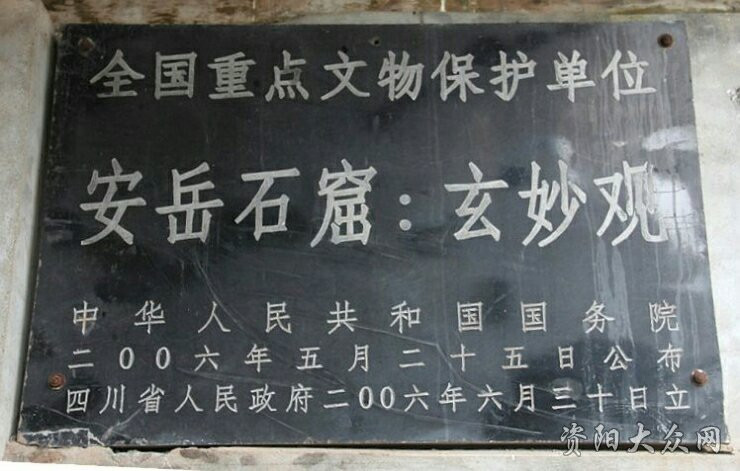 全国重点文物保护单位
安岳石窟：玄妙观
中华人民共和国国务院
二〇〇六年五月二十五日公布
四川省人民政府二〇〇六年六月三十日立
资阳大众网